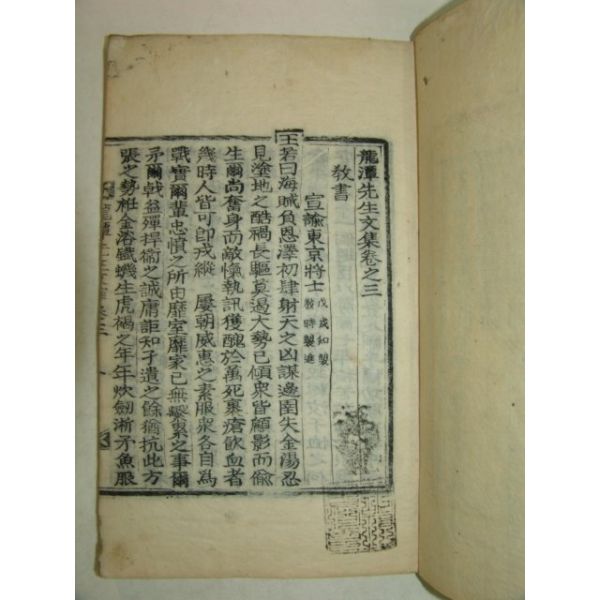 龍潭先生文集卷之三
教書
宣諭東京將士
王若曰海賊負恩澤初肆射天之凶謀邊圉失金湯忍
見塗地之酷禍長驅莫遏大勢已傾衆皆顧影而偸
生爾尚奮身而敵愾執訊獲醜於萬死裹瘡飮血者
幾時人皆可卽戎縱 屢朝威惠之素服衆各自爲
戰實爾輩忠憤之所由靡室靡家已無繫累之事爾
矛爾戟益殫捍衞之誠庸詎知孑遺之餘猶抗此方
張之勢衽金浴鐵蟣生虎禍之年年炊劒淅矛魚服